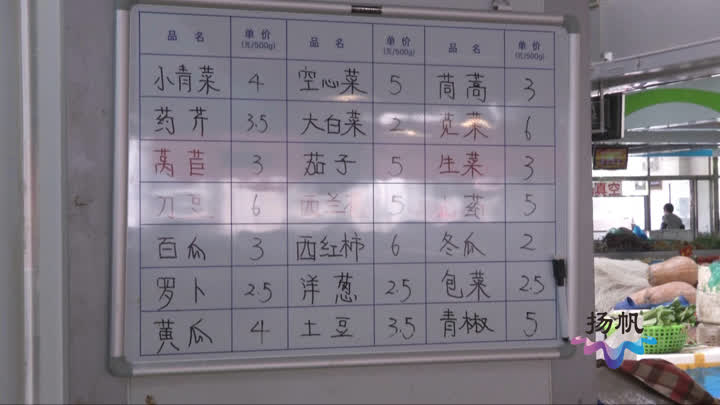 品 名 单 价 (元/500g) 品 名 单 价 (元/500g) 品 名 单 价 (元/500g)
小青菜 4 空心菜 5 茼蒿 3
药芹 3.5 大白菜 2 苋菜 6
莴苣 3 茄子 5 生菜 3
刀豆 6 西兰 5 药 5
百瓜 3 西红柿 6 冬瓜 2
罗卜 2.5 洋葱 2.5 包菜 2.5
黄瓜 4 土豆 3.5 青椒 5
真空
扬帆